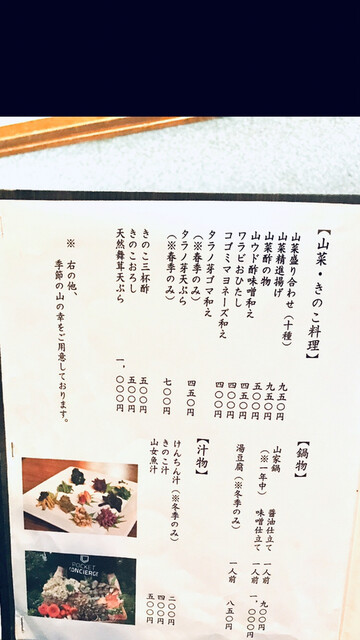 【山菜・きのこ料理】
山菜盛り合わせ（十種） 九五〇円
山菜精進揚げ 九五〇円
山菜酢の物 五〇〇円
山ウド酢味噌和え 四〇〇円
ワラビおひたし 四〇〇円
コゴミマヨネーズ和え 四〇〇円
タラノ芽ゴマ和え 四五〇円
（※春季のみ）
タラノ芽天ぷら 七〇〇円
（※春季のみ）
きのこ三杯酢 五〇〇円
きのこおろし 五〇〇円
天然舞茸天ぷら 一、〇〇〇円
※ 右の他、
季節の山の幸をご用意しております。
【鍋物】
山家鍋 醤油仕立て 一人前 九〇〇円
（※一年中） 味噌仕立て 一人前 一、〇〇〇円
湯豆腐（※冬季のみ） 一人前 八五〇円
【汁物】
けんちん汁（※冬季のみ） 二〇〇円
きのこ汁 四〇〇円
山女魚汁 五〇〇円
POCKET
CONCIERGE